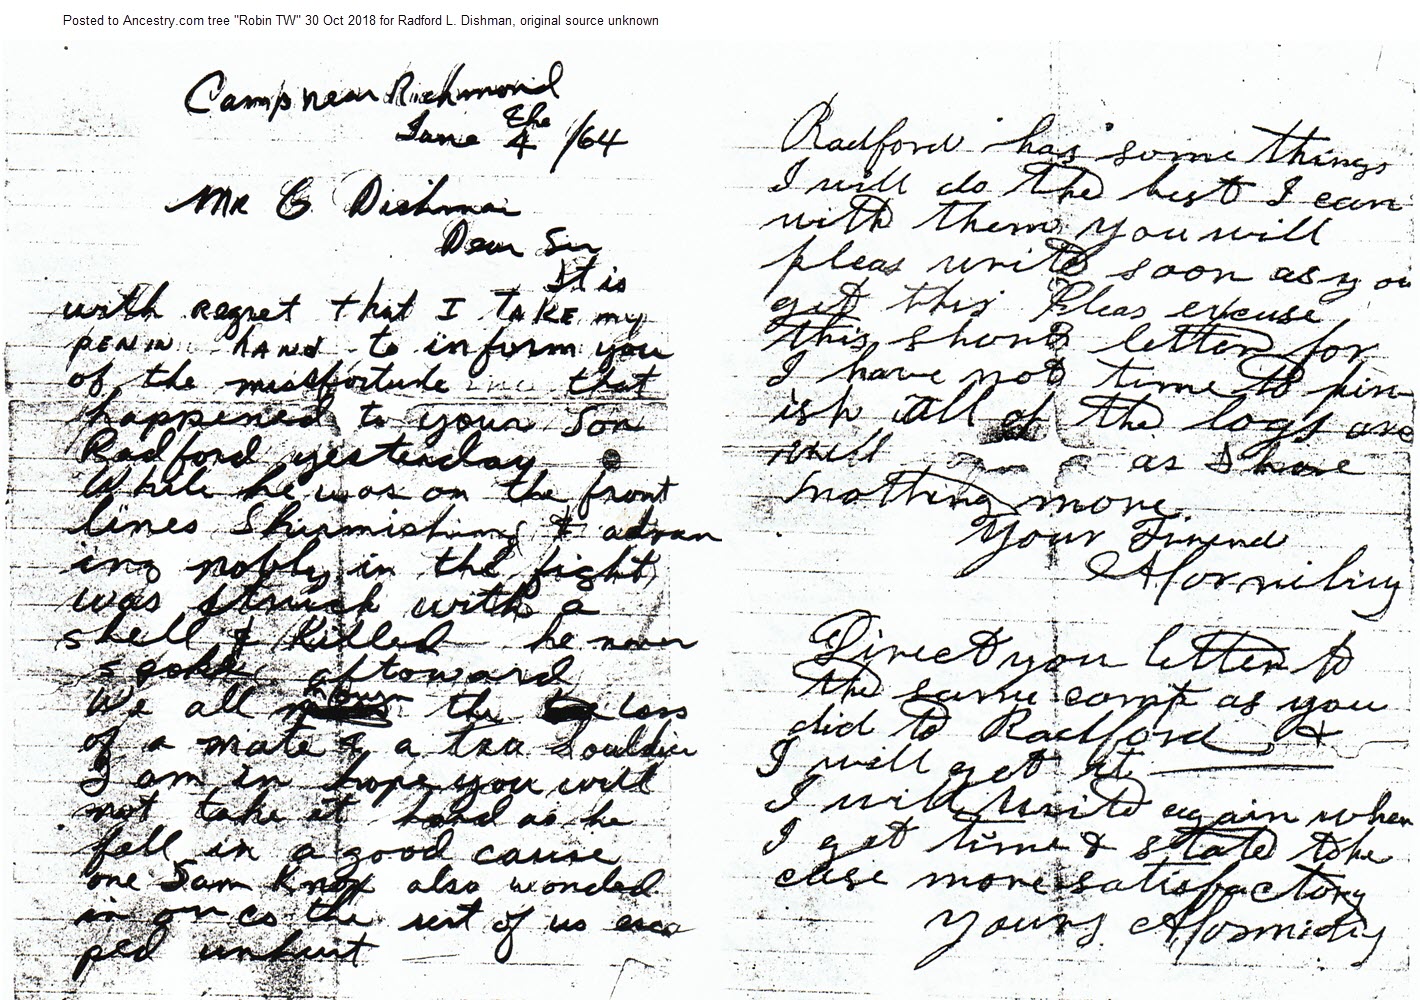 Posted to Ancestry.com tree "Robin TW" 30 Oct 2018 for Radford L. Dishman, original source unknown
Camp near Richmond
June 4 the /64
Mr C Dishman
Dear Sir
It is
with regret that I take my
pen in hand to inform you
of the missfortude that
happened to your Son
Radford yesterday
While he was on the front
lines Skirmishing & advan
ing nobly in the fight
was struck with a
shell & killed he never
spoke aftoward
We all mourn the loss
of a mate & a tru Souldier
I am in hope you will
not take it hard as he
fell in a good cause
one Sam Knox also wonded
in our co the rest of us esca
ped unhurt
Radford has some things
I will do the best I can
with them you will
pleas write soon as you
get this Pleas excuse
this short letter for
I have not time to fin
ish All of the logs are
will as I have
nothing more
Your Friend
Direct you letter to
the same comp as you
did to Radford &
I will get it
I will write again when
I get time & state the
case more satisfactory
Yours